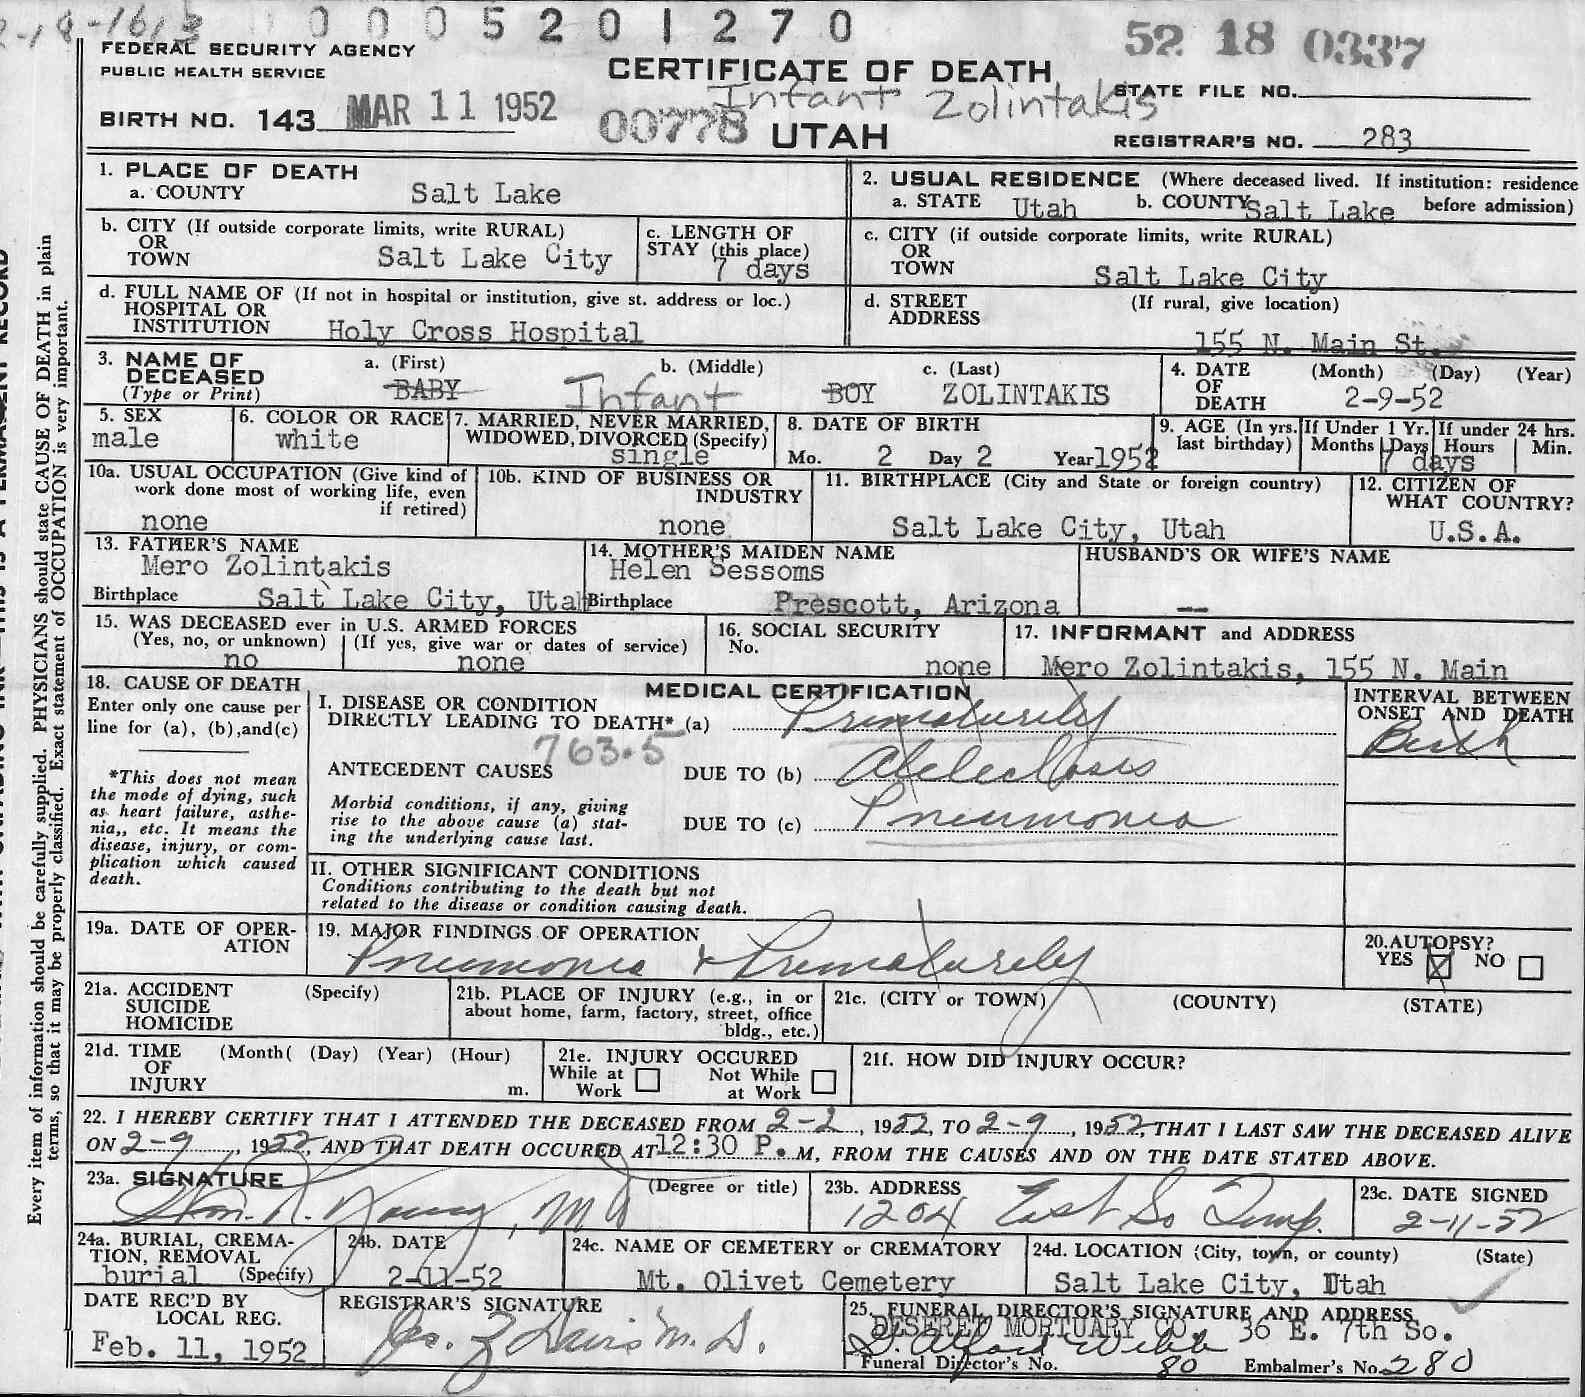 2-18-1613 0005201270
52 18 0337
FEDERAL SECURITY AGENCY
PUBLIC HEALTH SERVICE
CERTIFICATE OF DEATH
Infant Zolintakis
STATE FILE NO.
BIRTH NO. 143 MAR 11 1952
00778 UTAH
REGISTRAR'S NO. 283
1. PLACE OF DEATH
a. COUNTY Salt Lake
2. USUAL RESIDENCE (Where deceased lived. If institution: residence before admission)
a. STATE Utah b. COUNTY Salt Lake
b. CITY (If outside corporate limits, write RURAL)
OR
TOWN Salt Lake City
c. LENGTH OF
STAY (this place)
7 days
c. CITY (if outside corporate limits, write RURAL)
OR
TOWN Salt Lake City
d. FULL NAME OF (If not in hospital or institution, give st. address or loc.)
HOSPITAL OR
INSTITUTION Holy Cross Hospital
d. STREET (If rural, give location)
ADDRESS
155 N. Main St.
3. NAME OF
DECEASED
(Type or Print)
a. (First) b. (Middle) c. (Last)
BABY Infant BOY ZOLINTAKIS
4. DATE (Month) (Day) (Year)
OF
DEATH 2-9-52
5. SEX
male
6. COLOR OR RACE
white
7. MARRIED, NEVER MARRIED,
WIDOWED, DIVORCED (Specify)
single
8. DATE OF BIRTH
Mo. 2 Day 2 Year 1952
9. AGE (In yrs. last birthday)
If Under 1 Yr.
Months Days
If under 24 hrs.
Hours Min.
7 days
10a. USUAL OCCUPATION (Give kind of
work done most of working life, even
if retired)
none
10b. KIND OF BUSINESS OR
INDUSTRY
none
11. BIRTHPLACE (City and State or foreign country)
Salt Lake City, Utah
12. CITIZEN OF
WHAT COUNTRY?
U.S.A.
13. FATHER'S NAME
Mero Zolintakis
Birthplace Salt Lake City, Utah
14. MOTHER'S MAIDEN NAME
Helen Sessoms
Birthplace Prescott, Arizona
HUSBAND'S OR WIFE'S NAME
--
15. WAS DECEASED ever in U.S. ARMED FORCES
(Yes, no, or unknown) (If yes, give war or dates of service)
no none
16. SOCIAL SECURITY
No.
none
17. INFORMANT and ADDRESS
Mero Zolintakis, 155 N. Main
18. CAUSE OF DEATH
Enter only one cause per
line for (a), (b), and (c)
*This does not mean
the mode of dying, such
as heart failure, asthe-
nia,, etc. It means the
disease, injury, or com-
plication which caused
death.
MEDICAL CERTIFICATION
I. DISEASE OR CONDITION
DIRECTLY LEADING TO DEATH* (a) Prematurity
763.5
ANTECEDENT CAUSES DUE TO (b) Atelectasis
Morbid conditions, if any, giving
rise to the above cause (a) stat-
ing the underlying cause last.
DUE TO (c) Pneumonia
INTERVAL BETWEEN
ONSET AND DEATH
Birth
II. OTHER SIGNIFICANT CONDITIONS
Conditions contributing to the death but not
related to the disease or condition causing death.
19a. DATE OF OPER-
ATION
19. MAJOR FINDINGS OF OPERATION
Pneumonia & Prematurity
20. AUTOPSY?
YES NO
21a. ACCIDENT (Specify)
SUICIDE
HOMICIDE
21b. PLACE OF INJURY (e.g., in or
about home, farm, factory, street, office
bldg., etc.)
21c. (CITY or TOWN) (COUNTY) (STATE)
21d. TIME (Month( (Day) (Year) (Hour)
OF
INJURY m.
21e. INJURY OCCURED
While at Work Not While at Work
21f. HOW DID INJURY OCCUR?
22. I HEREBY CERTIFY THAT I ATTENDED THE DECEASED FROM 2-2, 1952, TO 2-9, 1952, THAT I LAST SAW THE DECEASED ALIVE
ON 2-9, 1952, AND THAT DEATH OCCURED AT 12:30 P. M, FROM THE CAUSES AND ON THE DATE STATED ABOVE.
23a. SIGNATURE (Degree or title)
Wm. R. Young, MD
23b. ADDRESS
1204 East So Temp.
23c. DATE SIGNED
2-11-52
24a. BURIAL, CREMA-
TION, REMOVAL
burial (Specify)
24b. DATE
2-11-52
24c. NAME OF CEMETERY or CREMATORY
Mt. Olivet Cemetery
24d. LOCATION (City, town, or county) (State)
Salt Lake City, Utah
DATE REC'D BY
LOCAL REG.
Feb. 11, 1952
REGISTRAR'S SIGNATURE
Davis M.D.
25. FUNERAL DIRECTOR'S SIGNATURE AND ADDRESS
DESERET MORTUARY CO. 36 E. 7th So.
Webb
Funeral Director's No. 80 Embalmer's No. 280
Every item of information should be carefully supplied. PHYSICIANS should state CAUSE OF DEATH in plain
terms, so that it may be properly classified. Exact statement of OCCUPATION is very important.